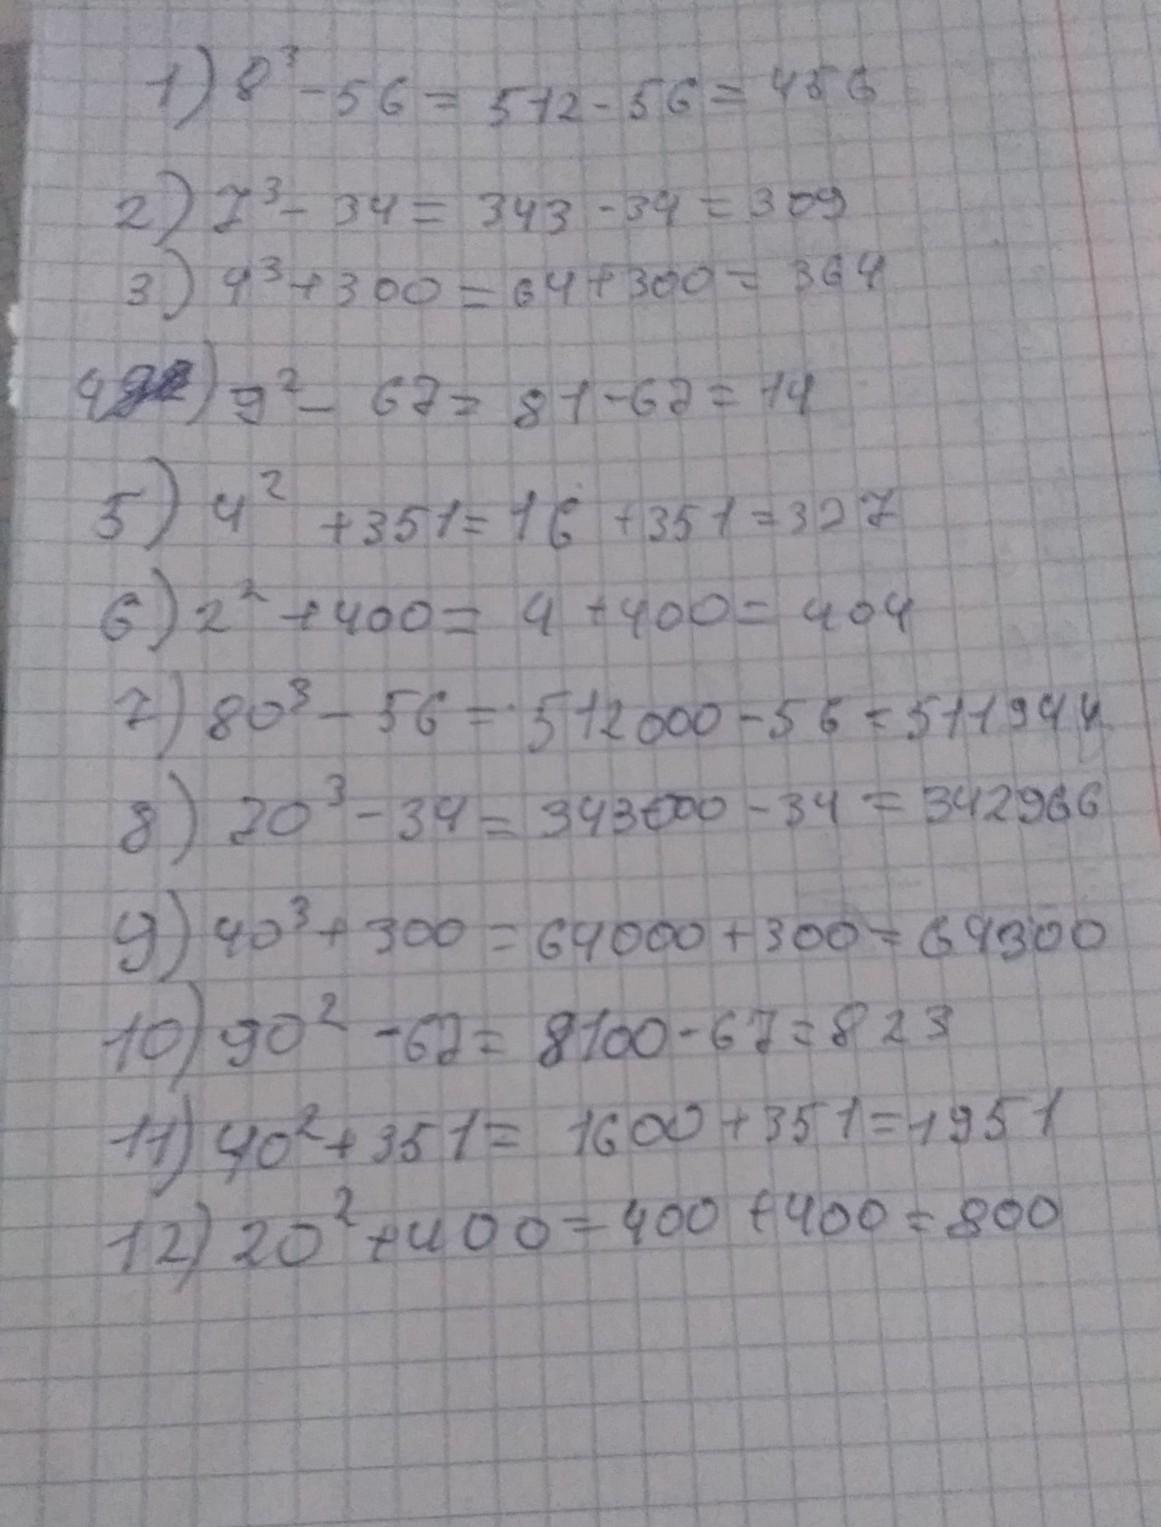 1) 8³ - 56 = 512 - 56 = 456
2) 7³ - 34 = 343 - 34 = 309
3) 4³ + 300 = 64 + 300 = 364
4) 9² - 67 = 81 - 67 = 14
5) 4² + 351 = 16 + 351 = 327
6) 2² + 400 = 4 + 400 = 404
7) 80³ - 56 = 512000 - 56 = 511944
8) 70³ - 34 = 343000 - 34 = 342966
9) 40³ + 300 = 64000 + 300 = 64300
10) 90² - 67 = 8100 - 67 = 823
11) 40² + 351 = 1600 + 351 = 1951
12) 20² + 400 = 400 + 400 = 800